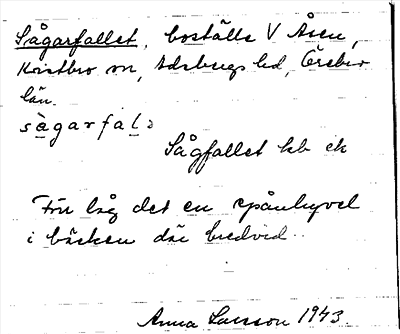 Sågarfallet, boställe V Åsen,
Kvistbro sn, Edsbergs hd, Örebro
län.
sågarfalə
Sågfallet kb ek
Förr låg det en spånhyvel
i bäcken där bredvid.
Anna Larsson 1943.